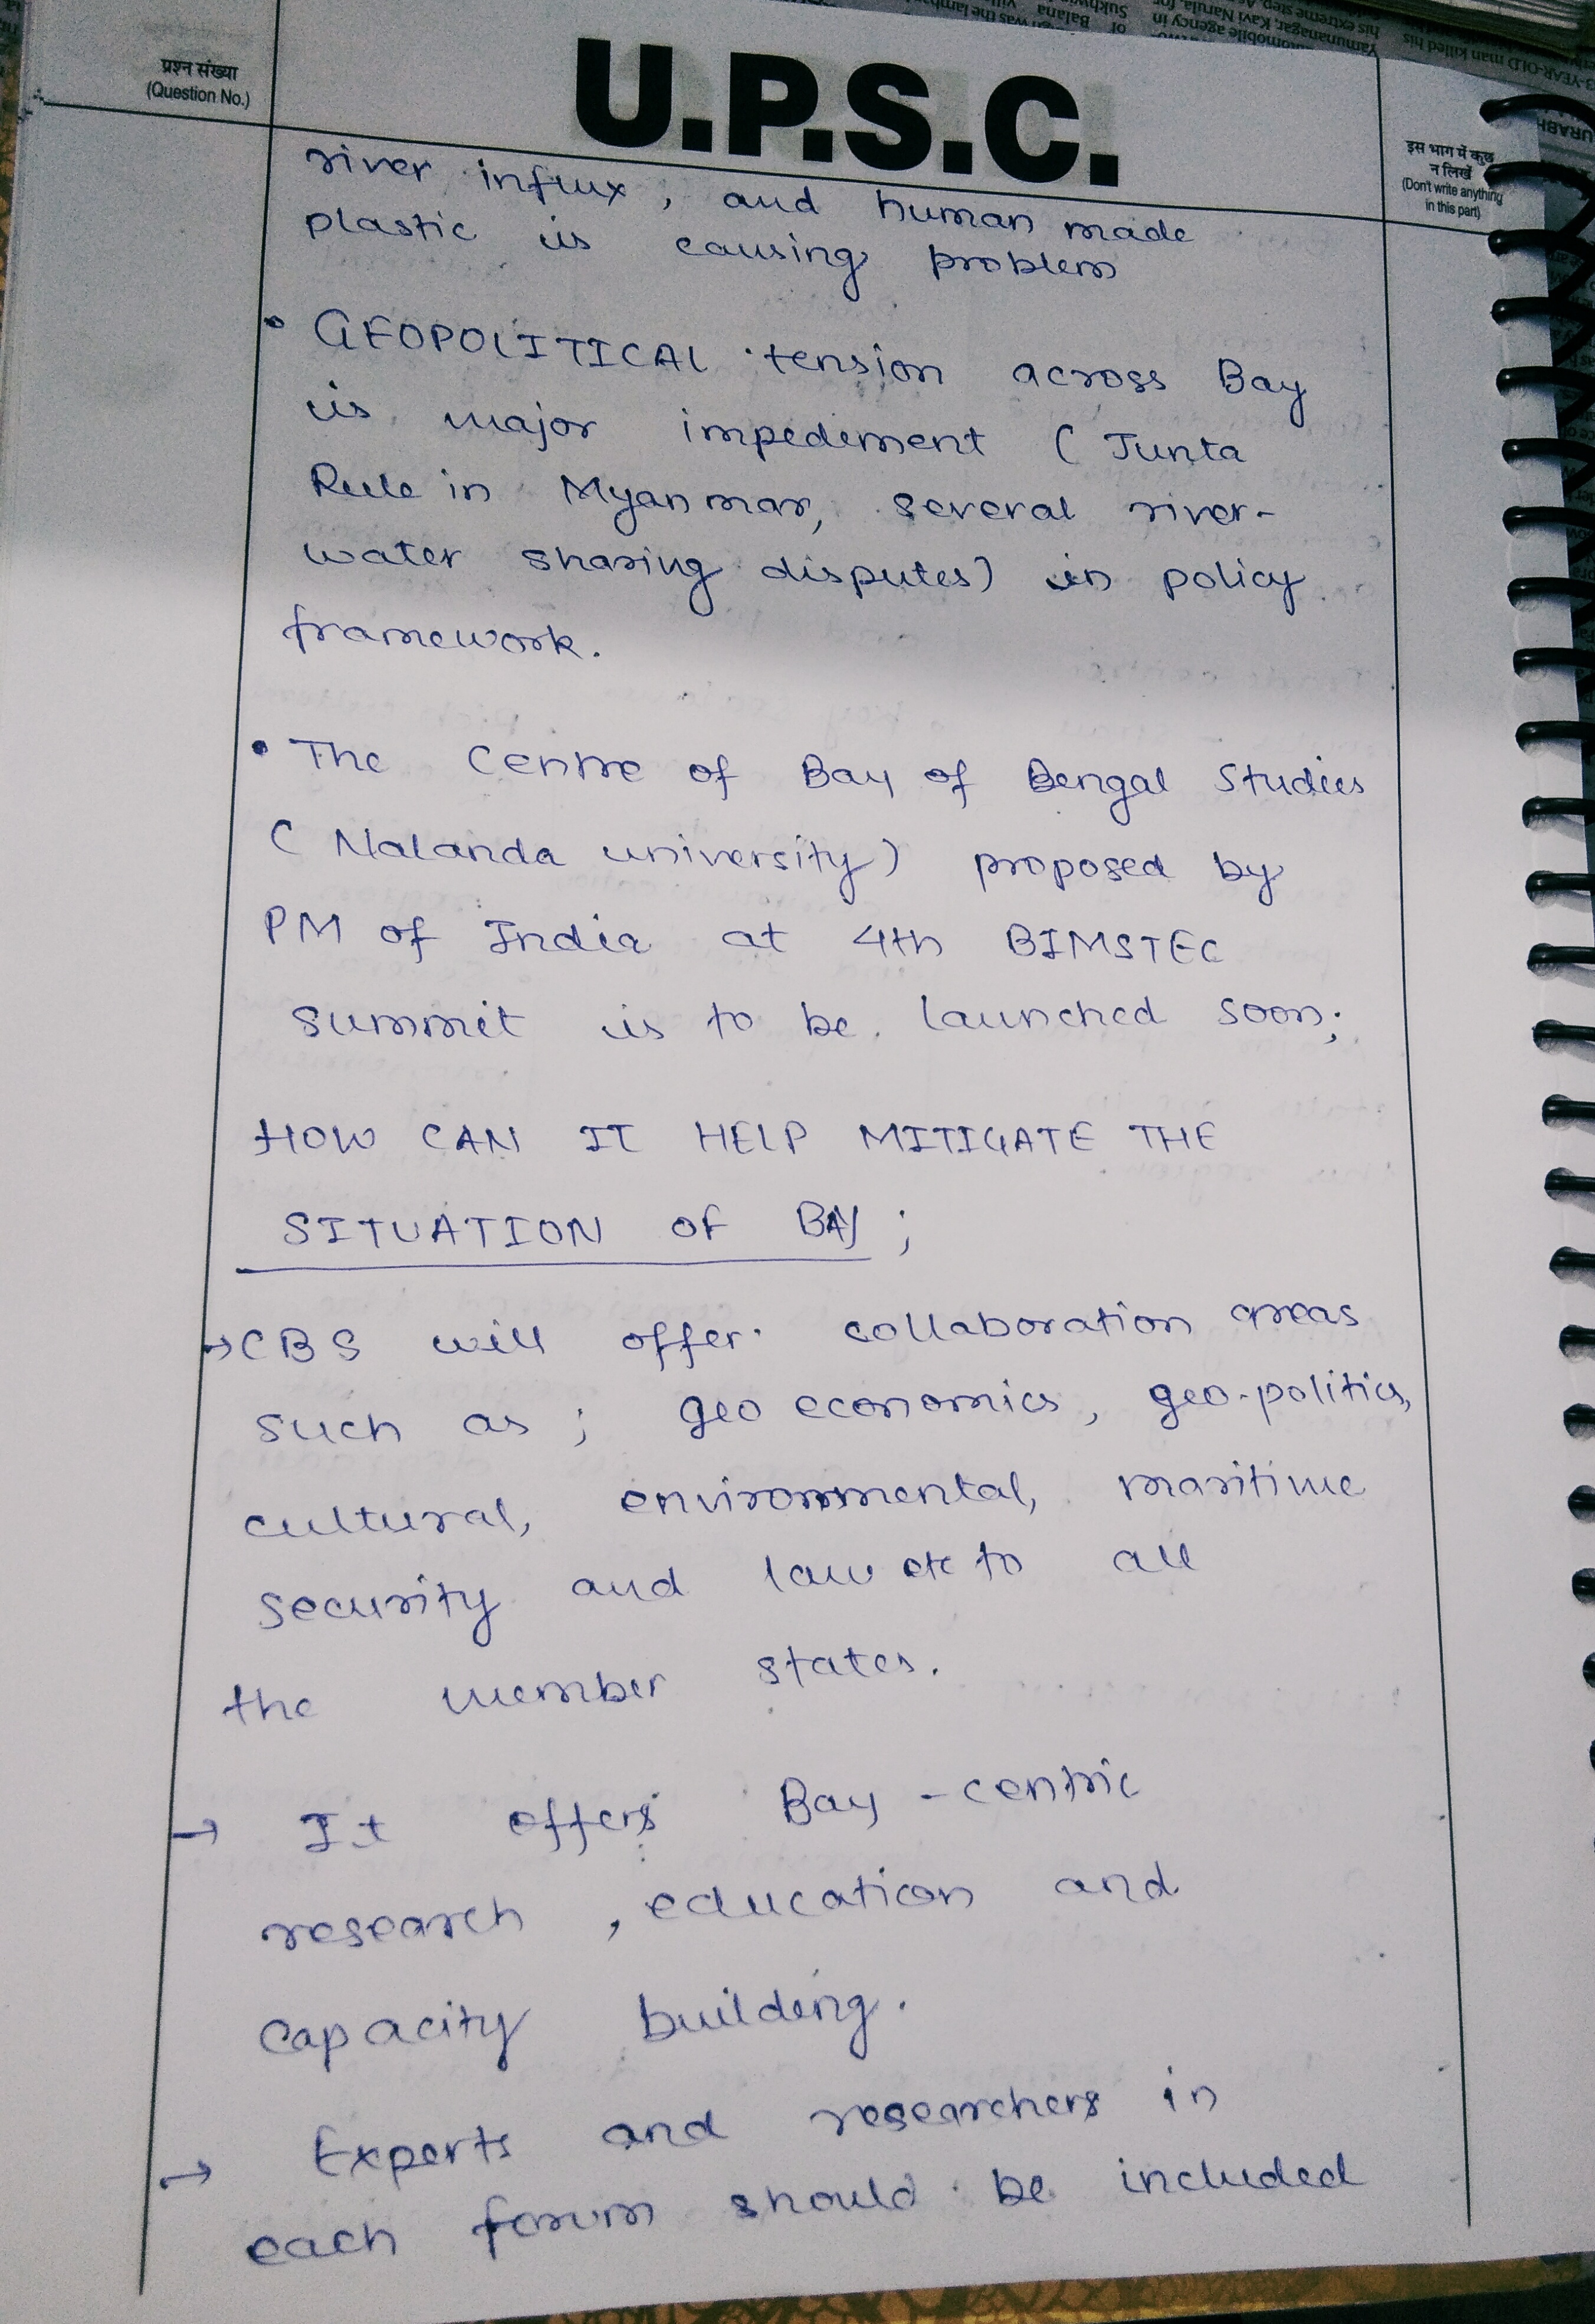 प्रश्न संख्या
(Question No.)
U.P.S.C.
इस भाग में कुछ
न लिखें
(Don't write anything
in this part)
river influx, and human made
plastic is causing problem
• GEOPOLITICAL tension across Bay
is major impedement (Junta
Rule in Myanmar, several river-
water sharing disputes) in policy
framework.
• The Centre of Bay of Bengal Studies
(Nalanda university) proposed by
PM of India at 4th BIMSTEC
summit is to be launched soon;
HOW CAN IT HELP MITIGATE THE
SITUATION OF BAY;
→ CBS will offer collaboration areas
such as; geo economics, geo-politics,
cultural, environmental, maritime
security and law etc to all
the member states.
→ It offers Bay-centric
research, education and
capacity building.
→ Experts and researchers in
each forum should be included